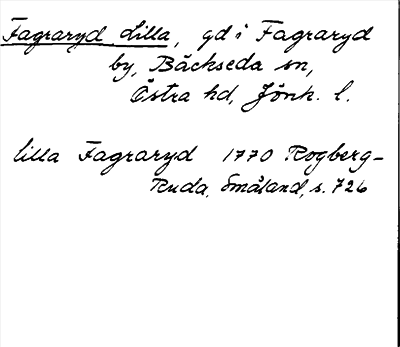 Fagraryd Lilla, gd i Fagraryd
by, Bäckseda sn,
Östra hd, Jönk. l.
lilla Fagraryd 1770 Rogberg-
Ruda, Småland, s. 726